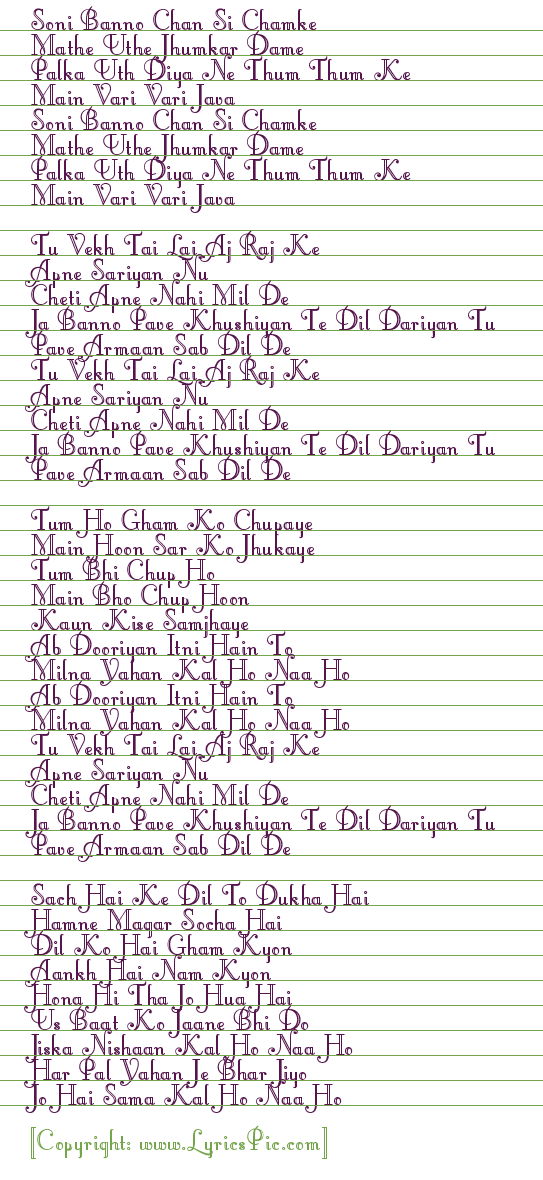 Soni Banno Chan Si Chamke
Mathe Uthe Jhumkar Dame
Palka Uth Diya Ne Thum Thum Ke
Main Vari Vari Java
Soni Banno Chan Si Chamke
Mathe Uthe Jhumkar Dame
Palka Uth Diya Ne Thum Thum Ke
Main Vari Vari Java
Tu Vekh Tai Lai Aj Raj Ke
Apne Sariyan Nu
Cheti Apne Nahi Mil De
Ja Banno Pave Khushiyan Te Dil Dariyan Tu
Pave Armaan Sab Dil De
Tu Vekh Tai Lai Aj Raj Ke
Apne Sariyan Nu
Cheti Apne Nahi Mil De
Ja Banno Pave Khushiyan Te Dil Dariyan Tu
Pave Armaan Sab Dil De
Tum Ho Gham Ko Chupaye
Main Hoon Sar Ko Jhukaye
Tum Bhi Chup Ho
Main Bho Chup Hoon
Kaun Kise Samjhaye
Ab Dooriyan Itni Hain To
Milna Yahan Kal Ho Naa Ho
Ab Dooriyan Itni Hain To
Milna Yahan Kal Ho Naa Ho
Tu Vekh Tai Lai Aj Raj Ke
Apne Sariyan Nu
Cheti Apne Nahi Mil De
Ja Banno Pave Khushiyan Te Dil Dariyan Tu
Pave Armaan Sab Dil De
Sach Hai Ke Dil To Dukha Hai
Hamne Magar Socha Hai
Dil Ko Hai Gham Kyon
Aankh Hai Nam Kyon
Hona Hi Tha Jo Hua Hai
Us Baat Ko Jaane Bhi Do
Jiska Nishaan Kal Ho Naa Ho
Har Pal Yahan Je Bhar Jiyo
Jo Hai Sama Kal Ho Naa Ho
[Copyright: www.LyricsPic.com]